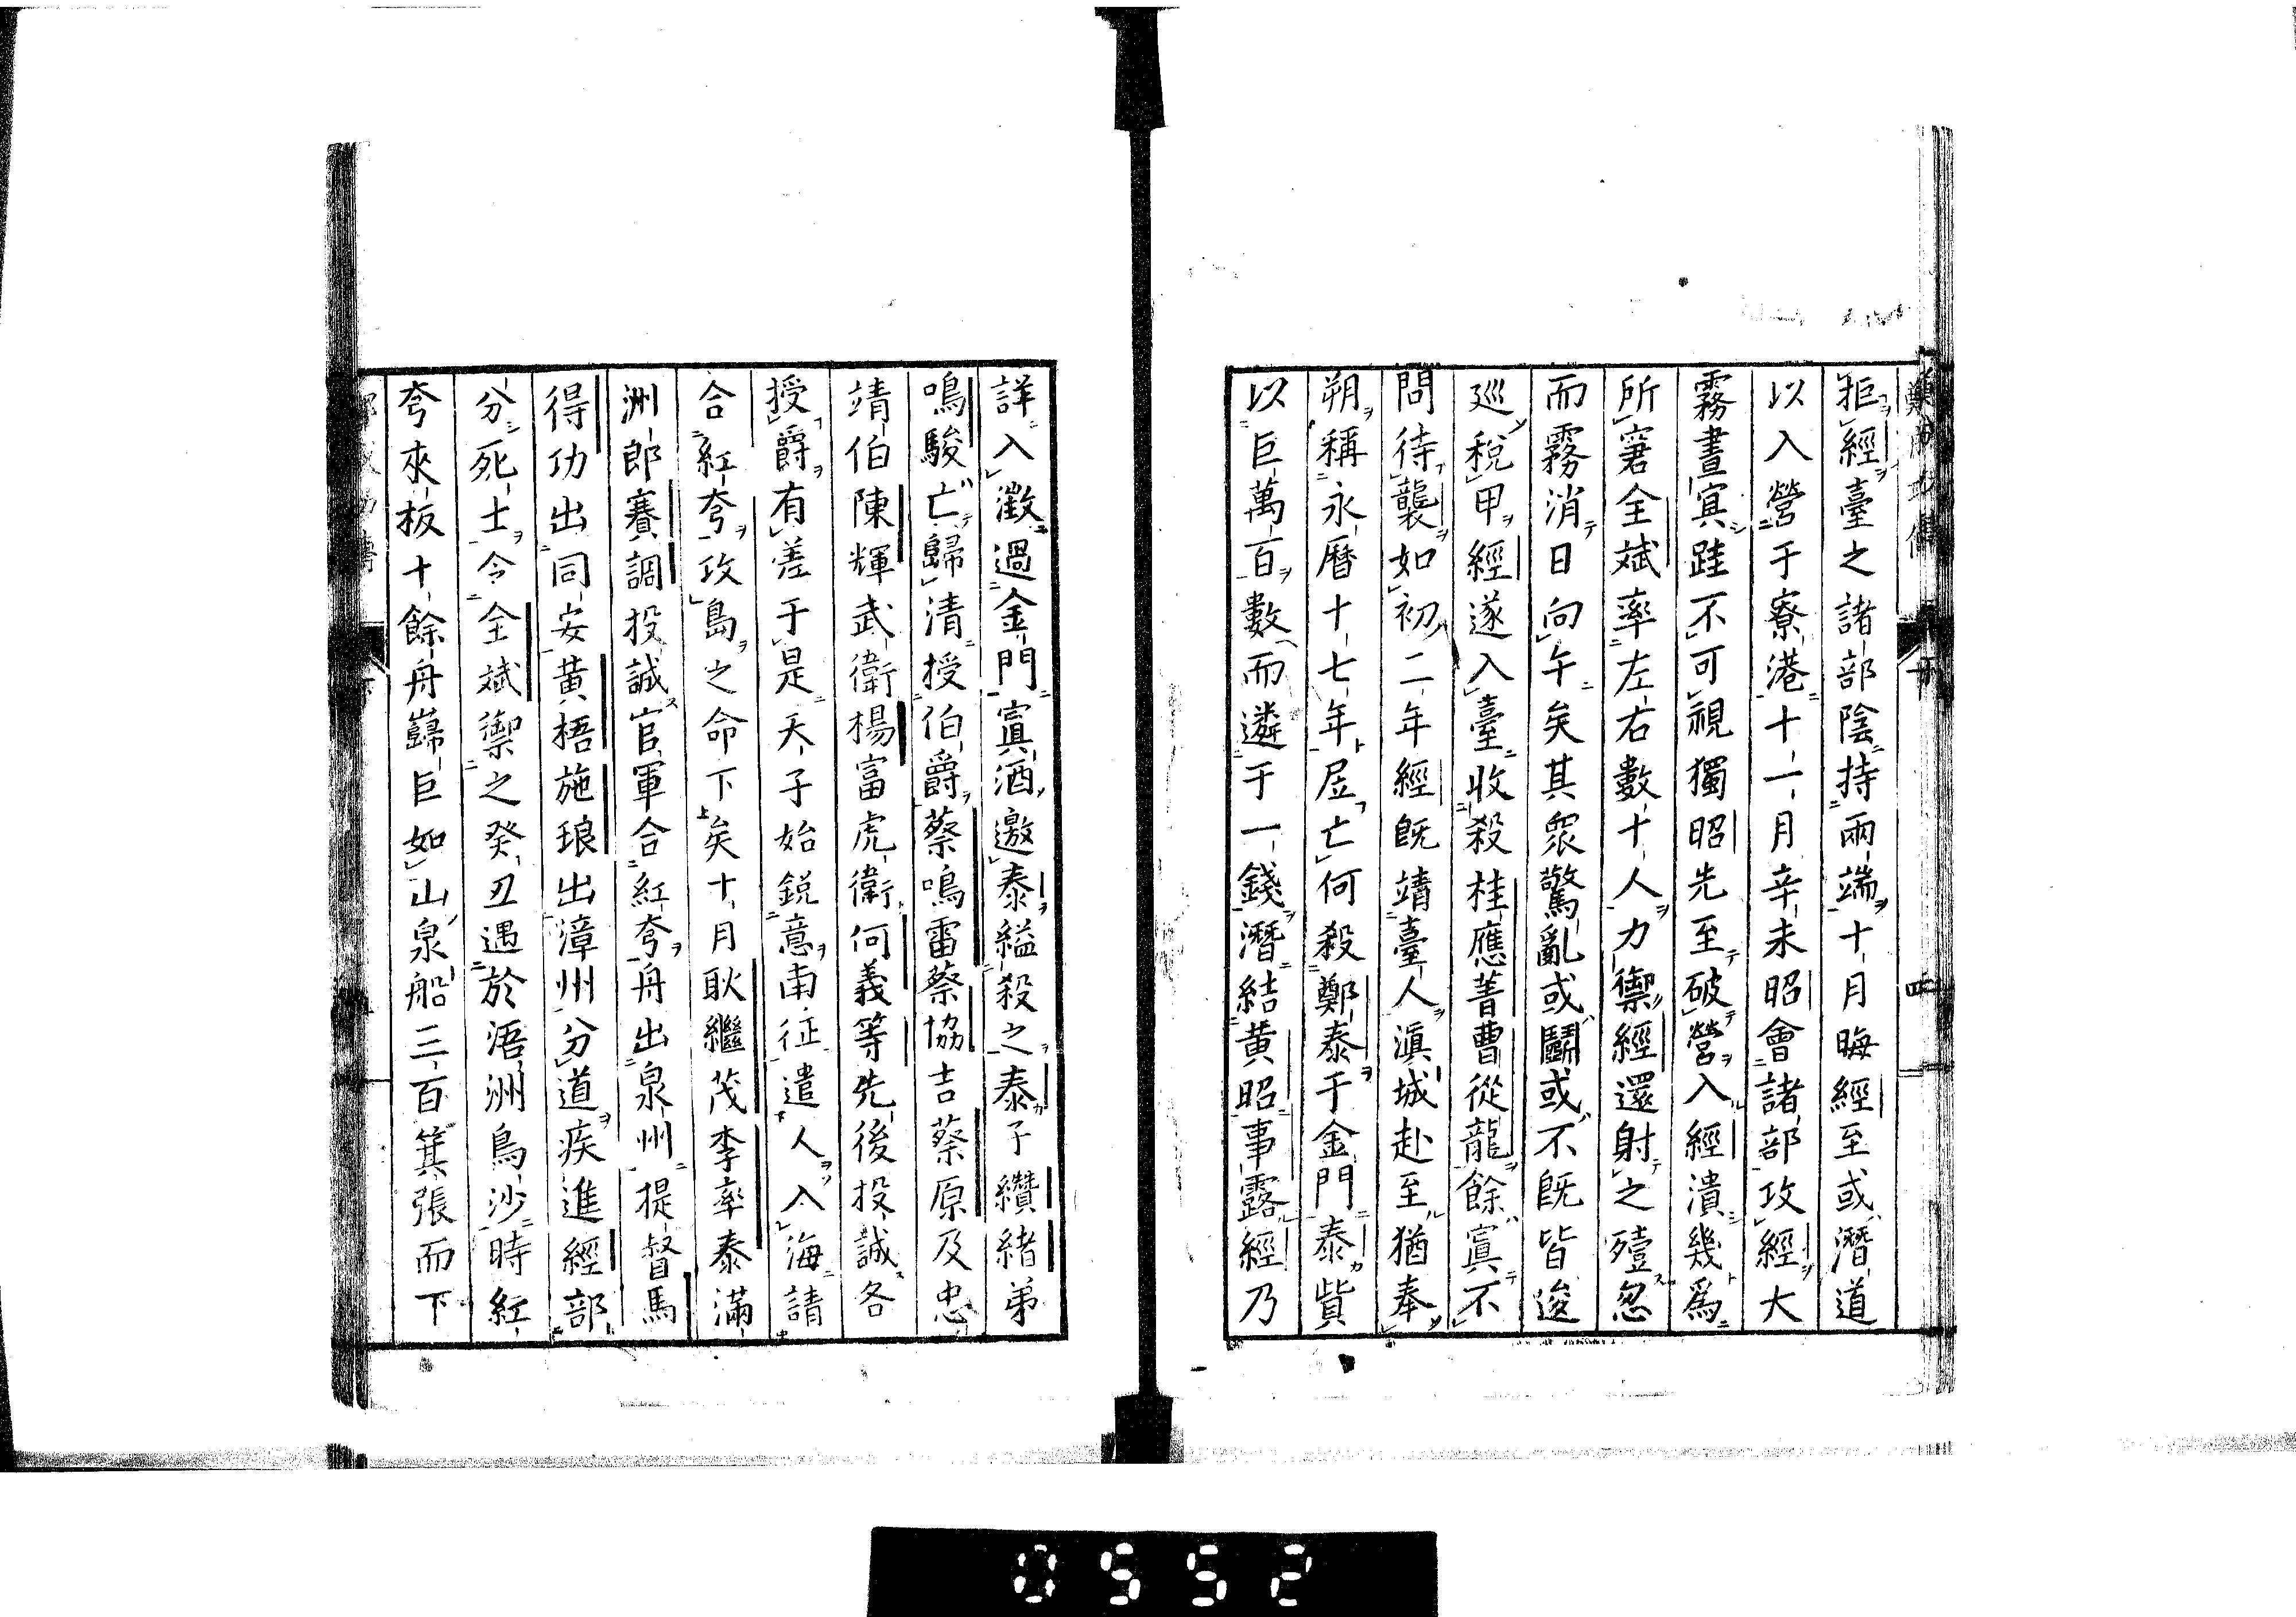 拒經臺之諸部陰持兩端十月晦經至或潛道
以入營于寮港十一月辛未昭會諸部攻經大
霧晝冥跬不可視獨昭先至破營入經潰幾爲
所窘全斌率左右數十人力禦經還射之殪忽
而霧消日向午矣其衆驚亂或鬪或不既皆逡
巡稅甲經遂入臺收殺桂應菁曹從龍餘寘不
問待襲如初二年經既靖臺人滇城赴至猶奉
朔稱永曆十七年昼亡何殺鄭泰于金門泰貲
以巨萬百數而遴于一錢潛結黄昭事露經乃
詳入澂過金門寘酒邀泰縊殺之泰子纘緒弟
鳴駿亡歸清授伯爵蔡鳴雷蔡協吉蔡原及忠
靖伯陳輝武衛楊富虎衛何義等先後投誠各
授爵有差于是天子始鋭意南征遣人入海請
合紅夸攻島之命下矣十月耿繼茂李率泰滿
洲郎賽調投誠官軍合紅夸舟出泉州提督馬
得功出同安黄梧施琅出漳州分道疾進經部
分死士令全斌禦之癸丑遇於浯洲烏沙時紅
夸來板十餘舟巋巨如山泉船三百箕張而下
四
0552